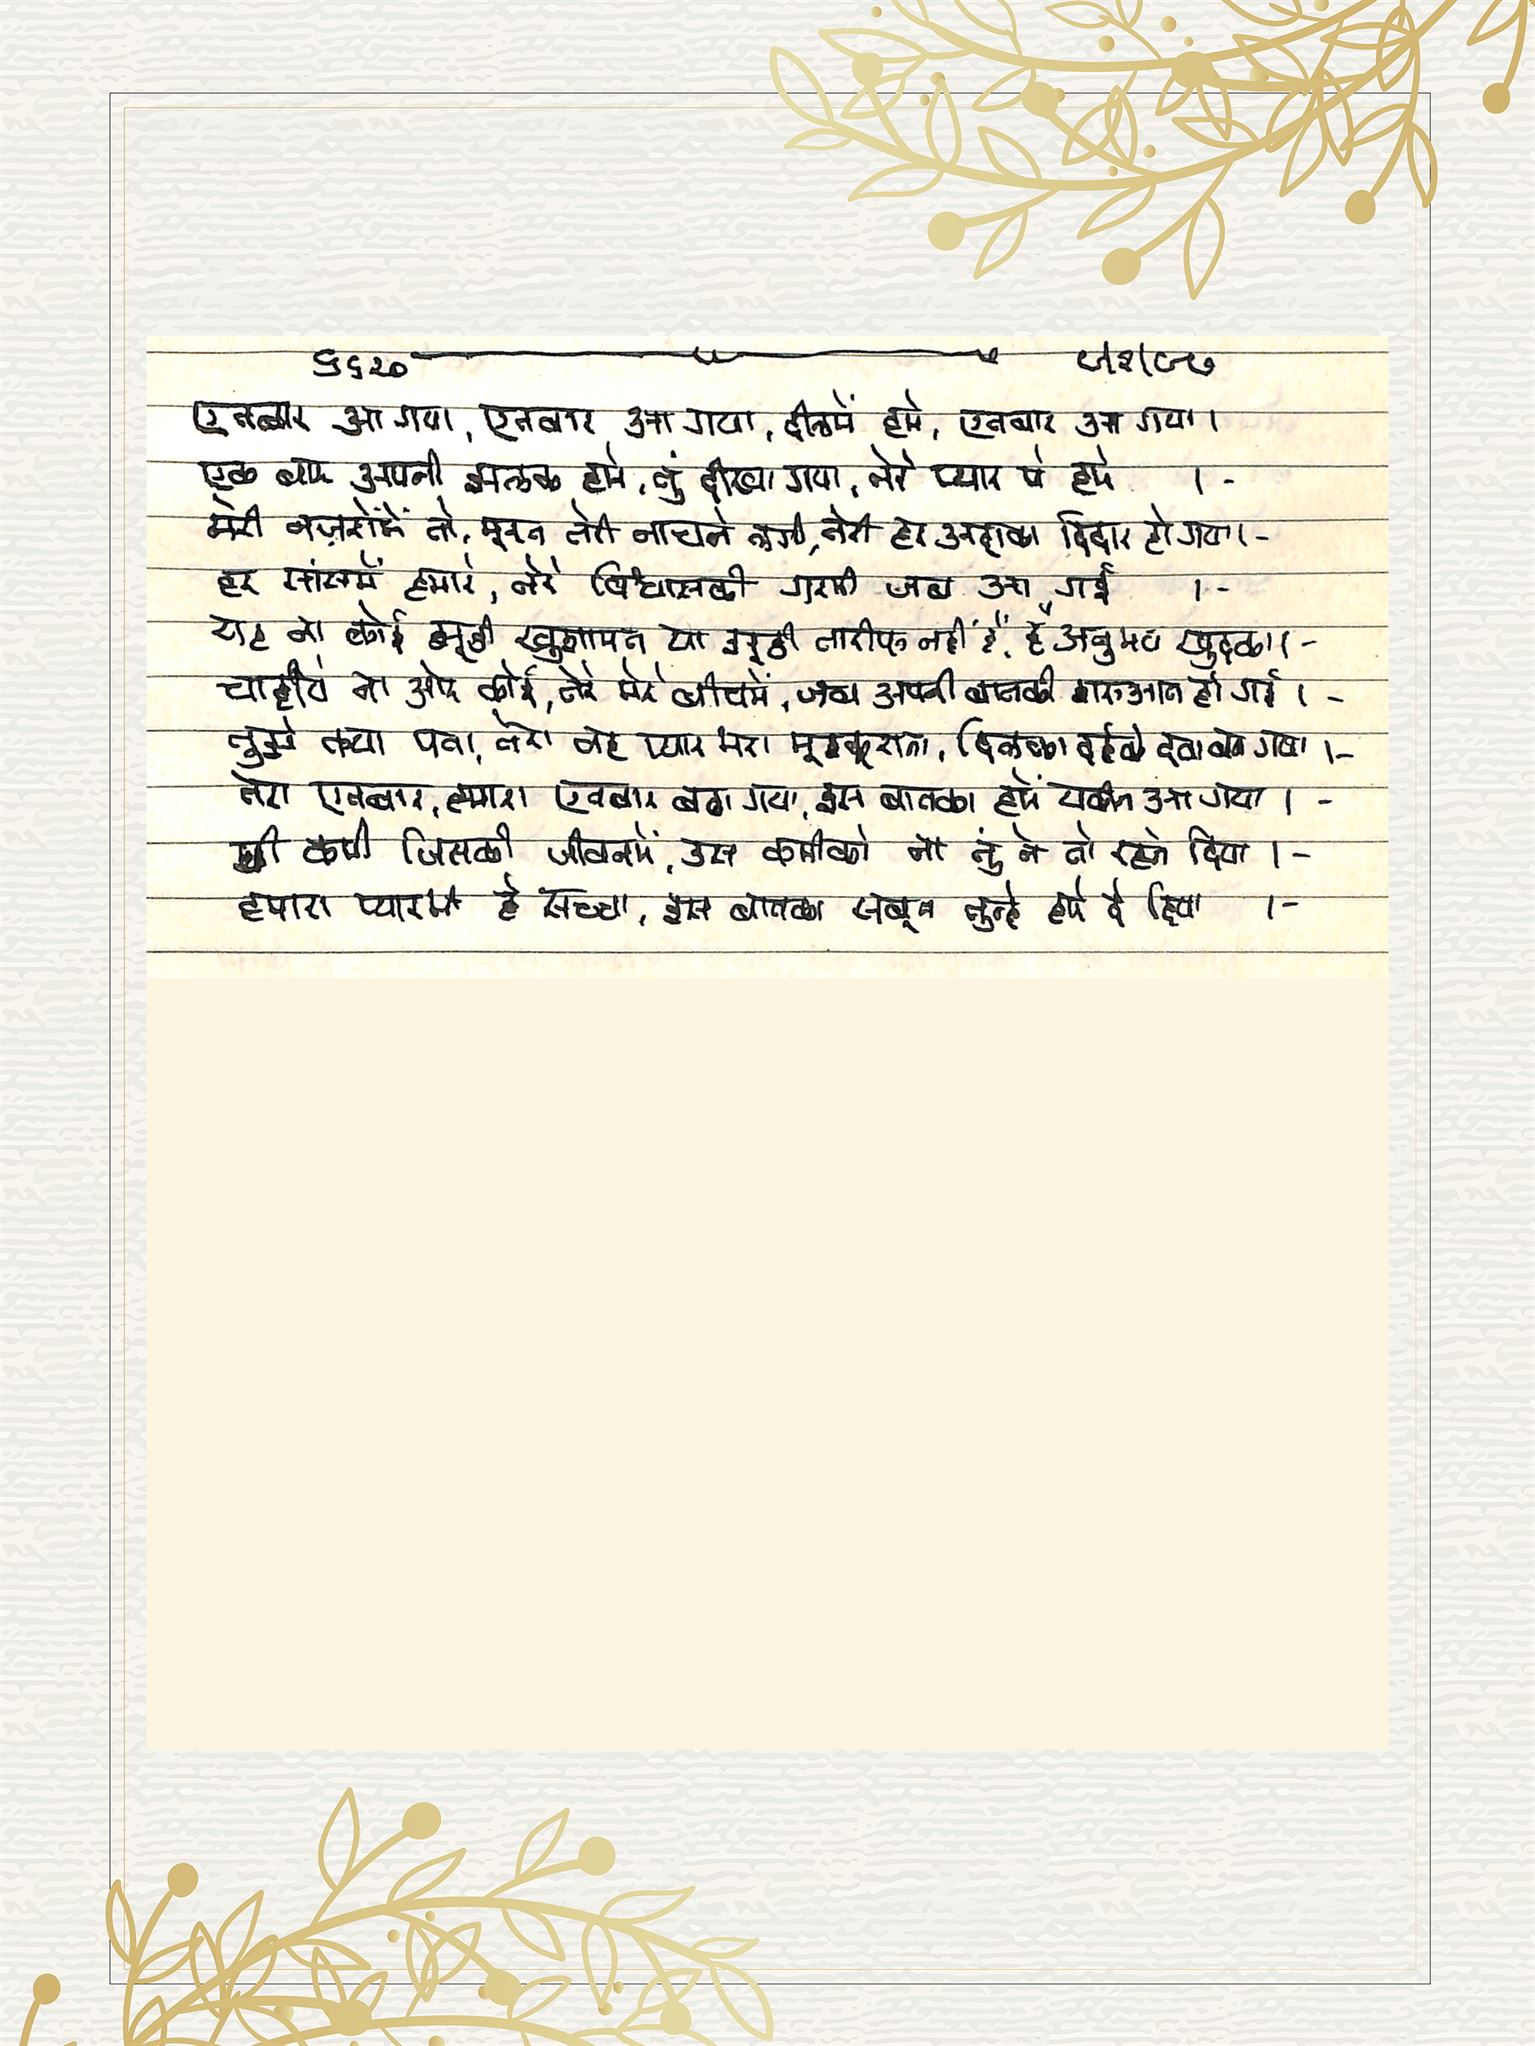 एतबार आ गया, एतबार आ गया, दीलमें हमे, एतबार आ गया।
एक बार अपनी झलक हमे, तुं दीखा गया, तेरे प्यार पे हमे ।-
मेरी नज़रोंमें तो, मूरत तेरी नाचने लगी, तेरी हर अदाका दिदार हो गया।-
हर सांसमें हमारे, तेरे विश्वासकी गरमी जब आ गई ।-
यह ना कोई झूठी खुशामत या झूठी तारीफ नहीं है, है अनुभव खुदका।-
चाहीये ना ओर कोई, तेरे मेरे बीचमें, जब अपनी बातकी शरुआत हो गई ।-
तुझे क्या पता, तेरा वह प्यार भरा मूस्कूराना, दिलका दर्दकी दवा बन गया ।-
तेरा एतबार, हमारा एतबार बन गया, इस बातका हमें यकीन आ गया ।-
थी कमी जिसकी जीवनमें, उस कमीको ना तुं ने तो रहने दिया ।-
हमारा प्यारभी है सच्चा, इस बातका सबूत तुन्हे हमे दे दिया ।-